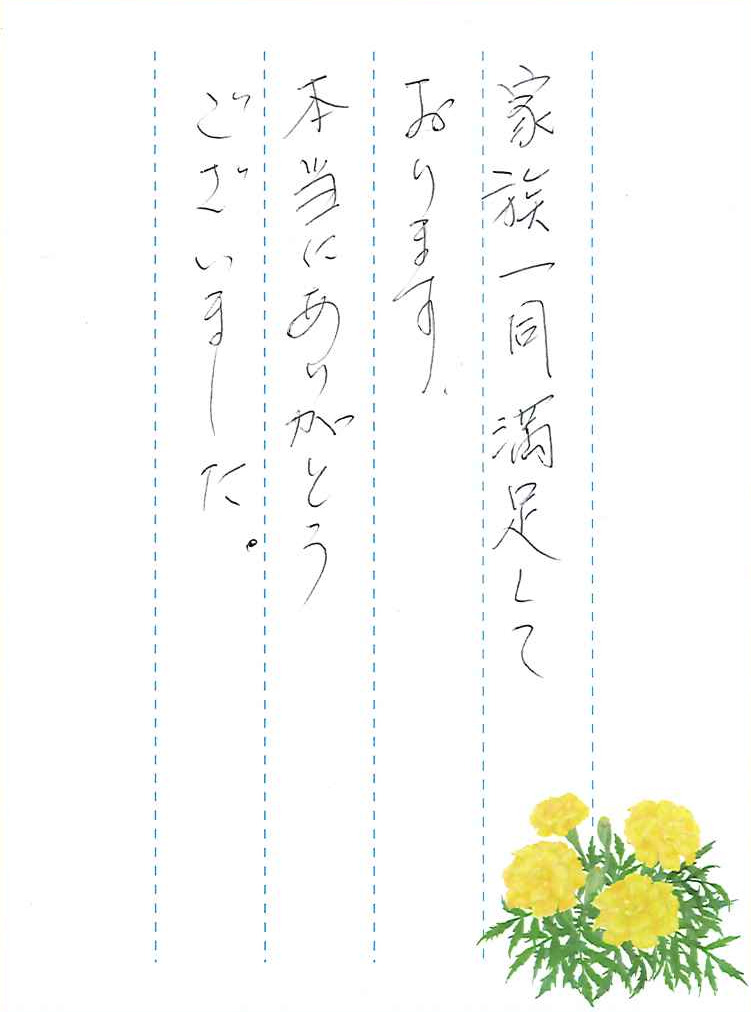 家族一同満足して
おります、
本当にありがとう
ございました。